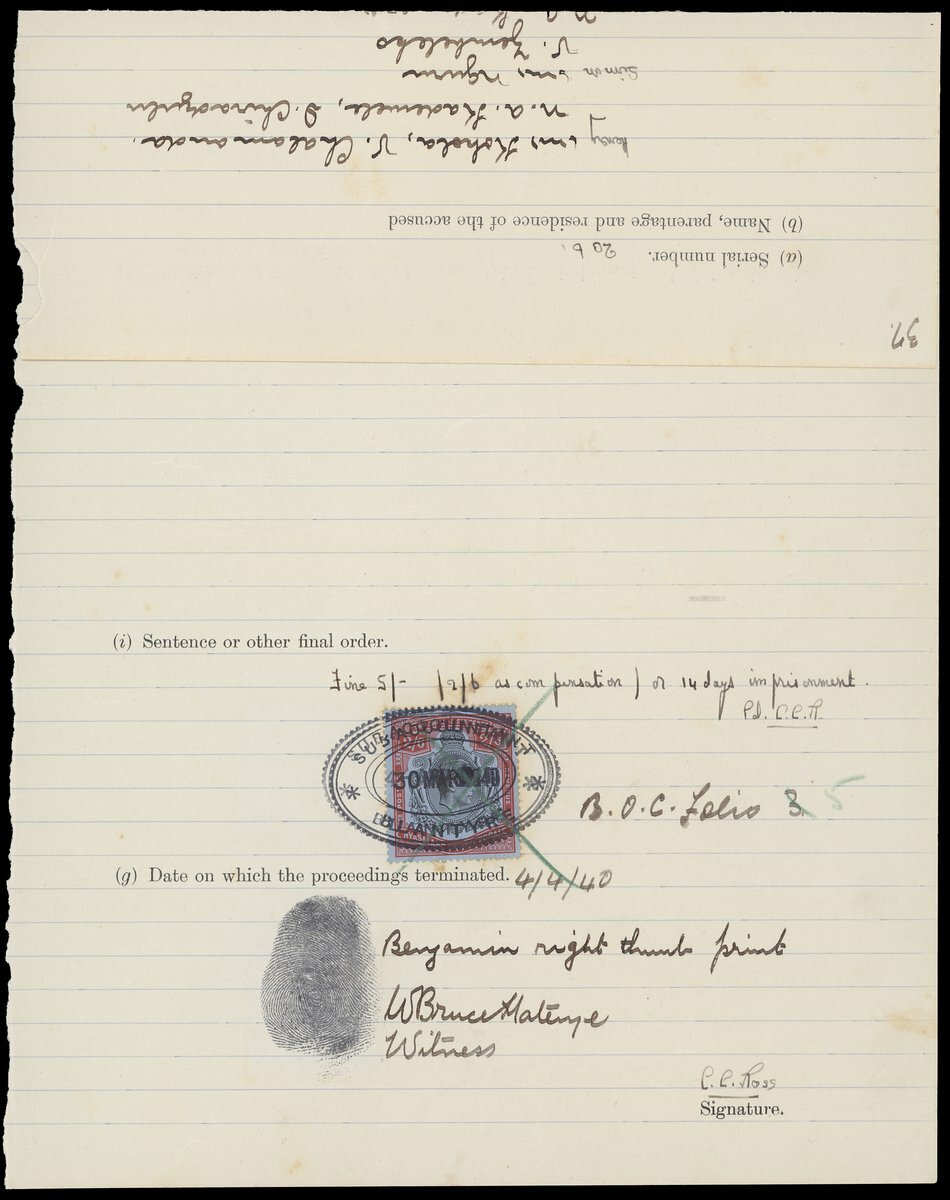 37.
(a) Serial number. 206.
(b) Name, parentage and residence of the accused
Henry Kohola, V. Chalamanda.
N.A. Kademele, D. Chiradzulu
Simon Nguru
V. Zembeleko
(i) Sentence or other final order.
Fine 5/- /2/6 as compensation / or 14 days imprisonment.
Sd. C.C.R.
2/6
30 MAR 40
BLANTYRE
B.O.C. Folio 3. 5
(g) Date on which the proceedings terminated. 4/4/40
Benjamin right thumb print
W Bruce Matenje
Witness
C.C. Ross
Signature.